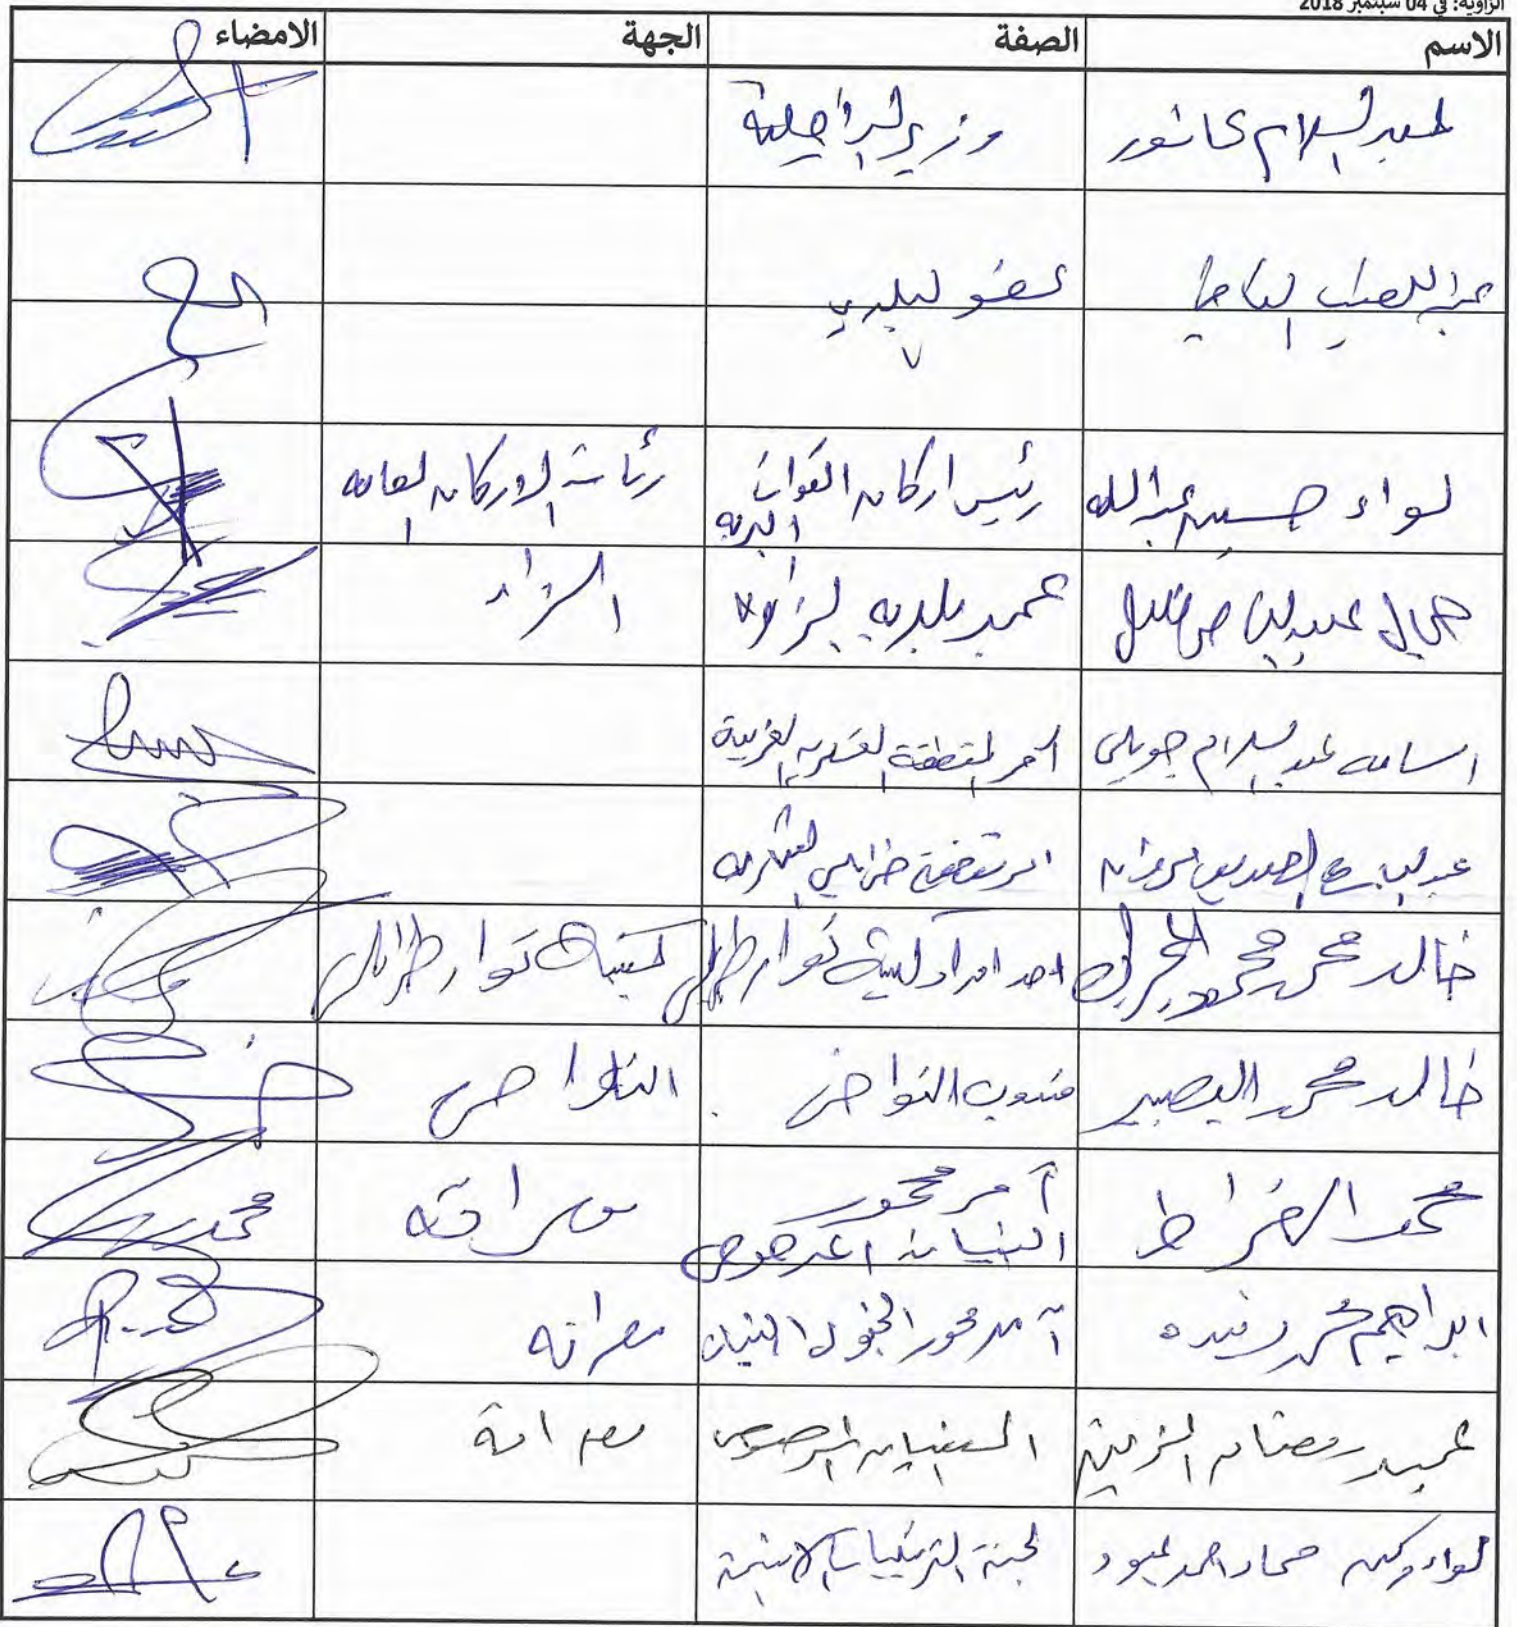 الزاوية: في 04 سبتمبر 2018
الاسم الصفة الجهة الامضاء
عبد السلام عاشور وزير الداخلية
عبد اللطيف عضو بلدي
لواء حسين عبد الله رئيس اركان القوات البرية رئاسة الاركان العامه
جمال عميد بلديه الزاوية
اسامه عبد السلام جويلي آمر المنطقة العسكريه الغربية
عبد الباسط الصديق مروان امر منطقة طرابلس العسكريه
خالد محمد محمود احد افراد كتيبة ثوار طرابلس كتيبة ثوار طرابلس
خالد محمد البصير مندوب النواصي النواصي
محمد الضراط آمر محور البنيان المرصوص مصراته محمد
ابراهيم محمد رفيده آمر محور البنيان مصراته
عميد رمضان البنيان المرصوص مصراتة
لواء ركن حماد احمد عبود لجنة الترتيبات الامنية